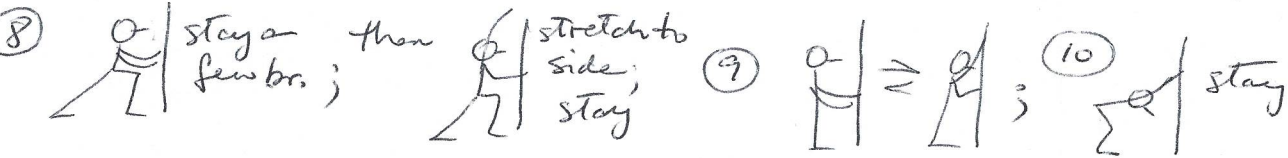 ⑧ stay a few br. ; then stretch to side; stay ⑨ ⇌ ; ⑩ stay